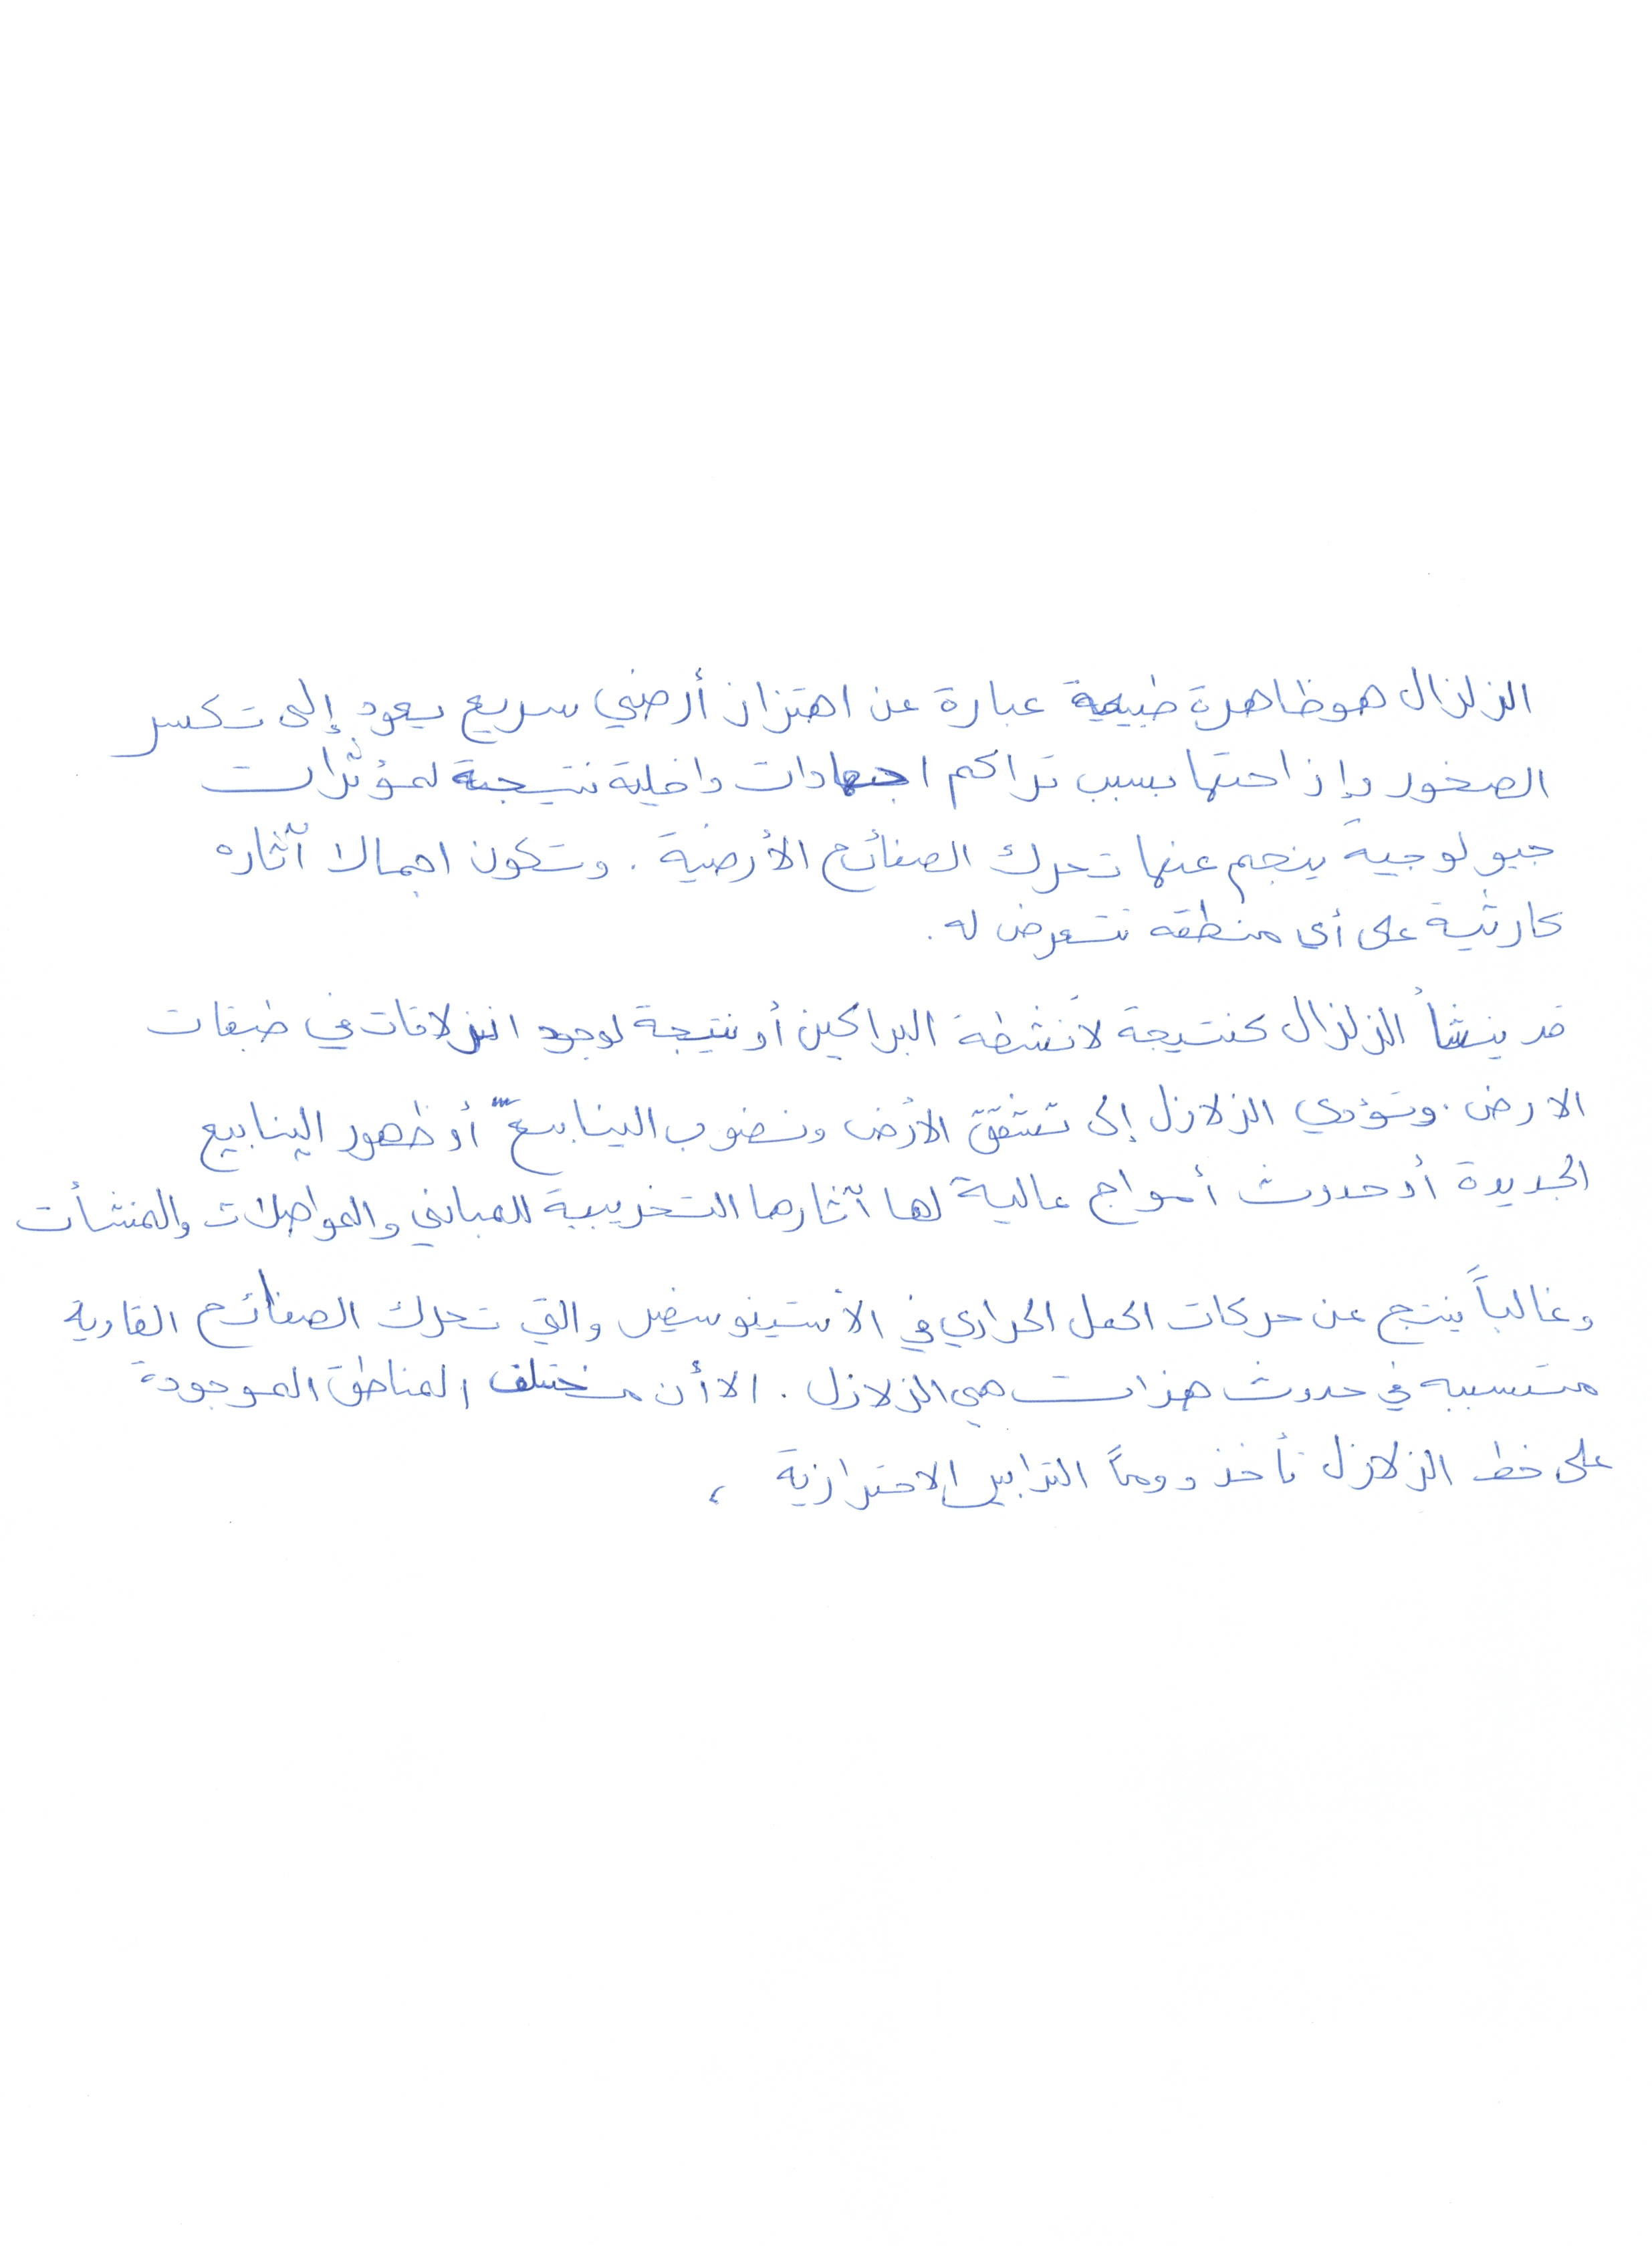 الزلزال هو ظاهرة طبيعية عبارة عن اهتزاز أرضي سريع يعود إلى تكسر
الصخور وإزاحتها بسبب تراكم اجهادات داخلية نتيجة لمؤثرات
جيولوجية ينجم عنها تحرك الصفائح الأرضية . وتكون اجمالا آثاره
كارثية على أي منطقه تتعرض له .
قد ينشأ الزلزال كنتيجة لأنشطة البراكين أو نتيجة لوجود انزلاقات في طبقات
الارض . وتؤدي الزلازل إلى تشقق الأرض ونضوب الينابيع أو ظهور الينابيع
الجديدة أو حدوث أمواج عالية لها آثارها التخريبية للمباني والمواصلات والمنشأت
وغالباً ينتج عن حركات الحمل الحراري في الأستينوسفير والتي تحرك الصفائح القارية
متسببه في حدوث هزات هي الزلازل . الا أن مختلف المناطق الموجودة
على خط الزلازل تأخذ دوماً التدابير الاحترازية ،